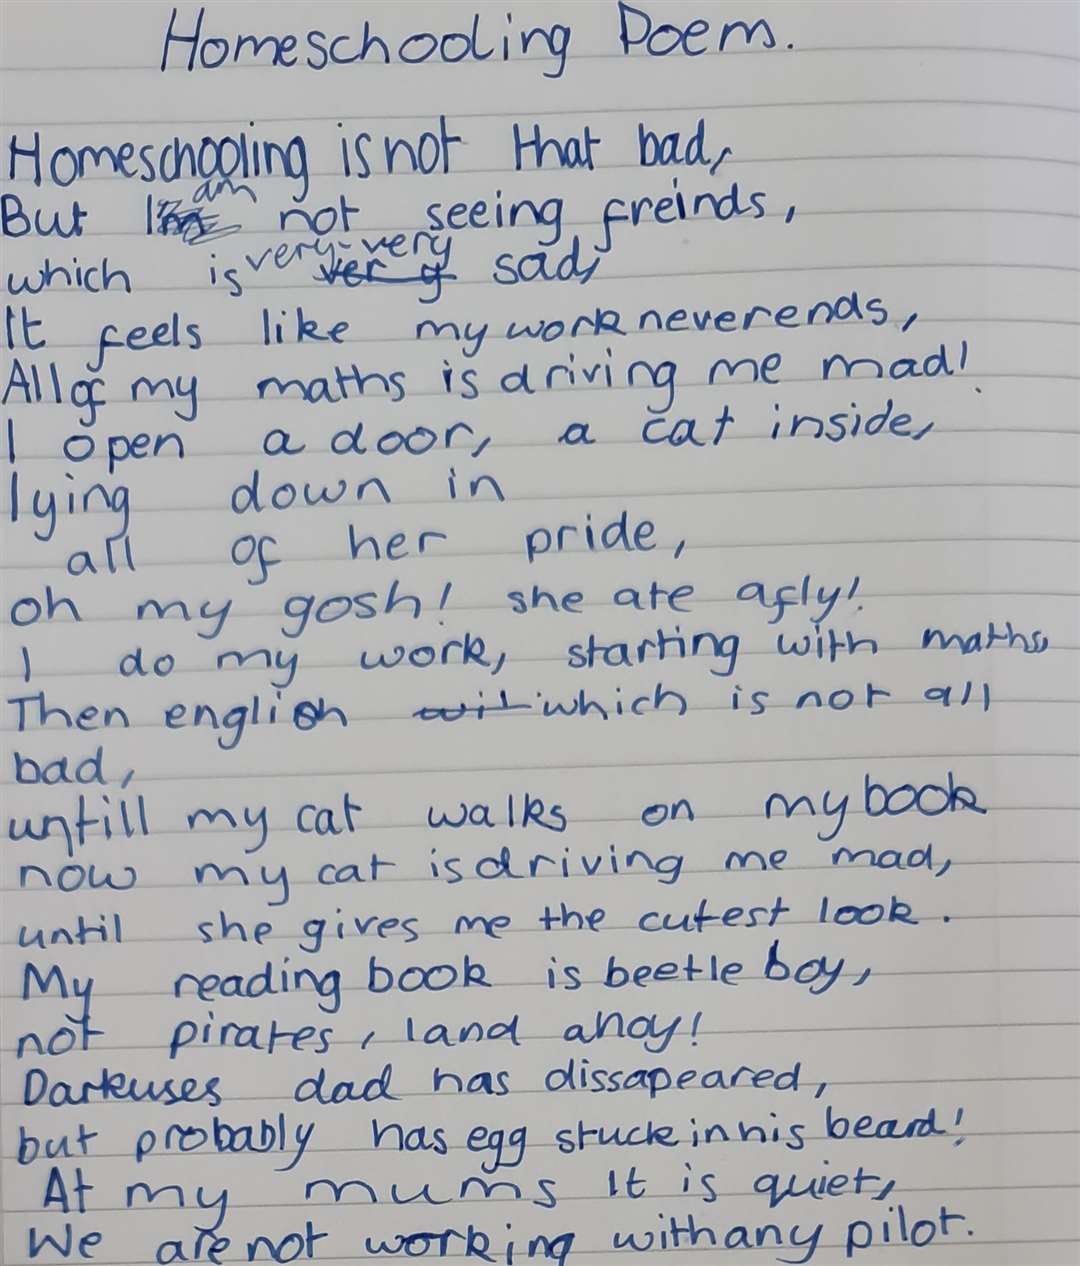 Homeschooling Poem.
Homeschooling is not that bad,
But I am not seeing freinds,
which is very-very sad,
It feels like my work never ends,
All of my maths is driving me mad!
I open a door, a cat inside,
lying down in
all of her pride,
oh my gosh! she ate a fly!
I do my work, starting with maths,
Then english which is not all
bad,
untill my cat walks on my book
now my cat is driving me mad,
until she gives me the cutest look.
My reading book is beetle boy,
not pirates, land ahoy!
Darkuses dad has dissapeared,
but probably has egg stuck in his beard!
At my mums it is quiet,
We are not working with any pilot.